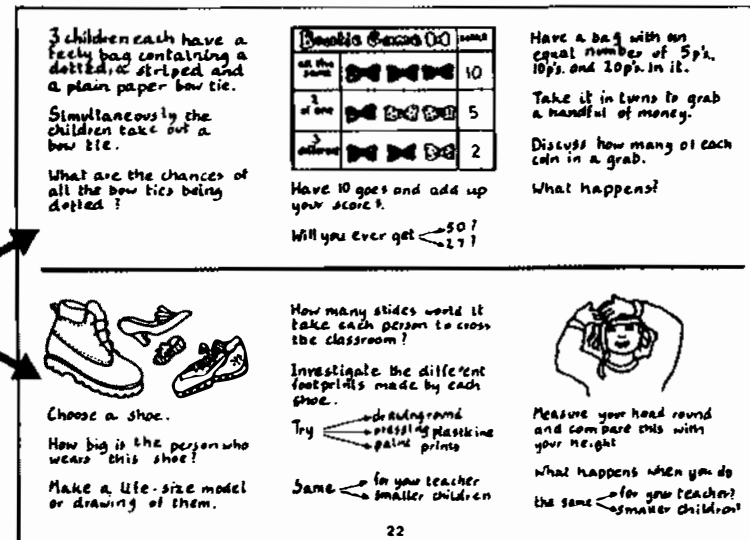 3 children each have a
feely bag containing a
dotted, a striped and
a plain paper bow tie.
Simultaneously the
children take out a
bow tie.
What are the chances of
all the bow ties being
dotted ?
Bowtie Game
all the same 10
2 of one 5
3 different 2
Have 10 goes and add up
your scores.
Will you ever get 50?
27?
Have a bag with an
equal number of 5p's,
10p's. and 20p's. in it.
Take it in turns to grab
a handful of money.
Discuss how many of each
coin in a grab.
What happens?
Choose a shoe.
How big is the person who
wears this shoe?
Make a life-size model
or drawing of them.
How many slides would it
take each person to cross
the classroom ?
Investigate the different
footprints made by each
shoe.
Try drawing round
pressing plasticine
paint prints
Same for your teacher
smaller children
Measure your head round
and compare this with
your height
What happens when you do
the same for your teacher?
smaller children?
22